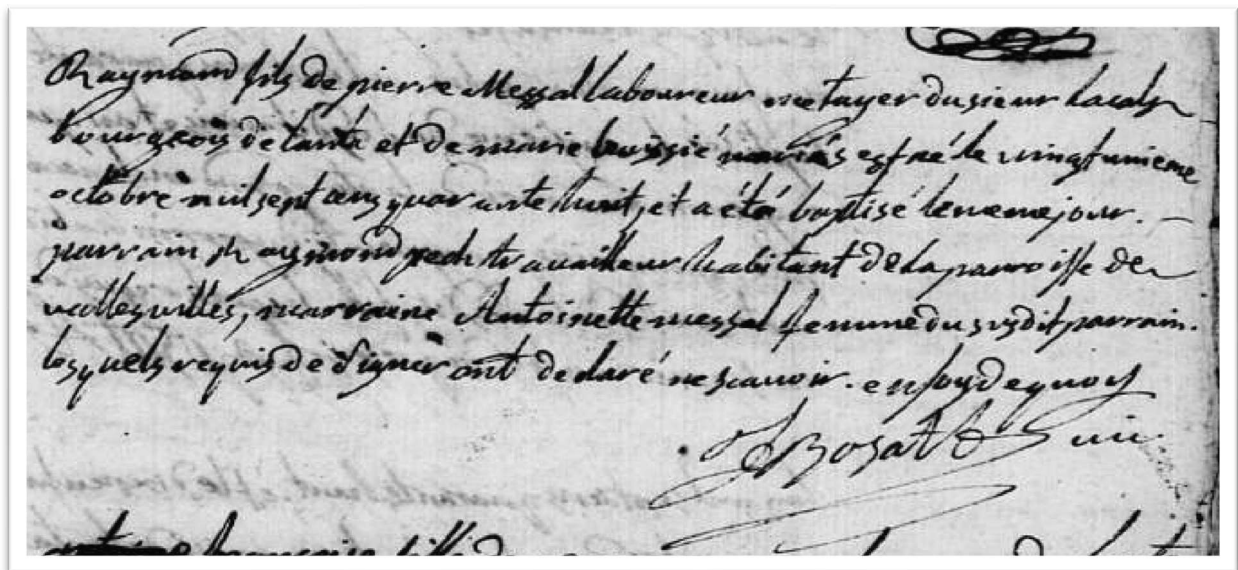 Raymond fils de pierre Messal laboureur metayer du sieur
bourgeois de lanta et de marie mariés est né le vingtunieme
octobre mil sept cens quarante huit, et a été baptisé le meme jour. —
parrain Raymond pech travailleur habitant de la parroisse de
vallesvilles, marraine Antoinette messal femme du susdit parrain.
lesquels requis de signer ont declaré ne scavoir. en foy de quoy
françoise fille de